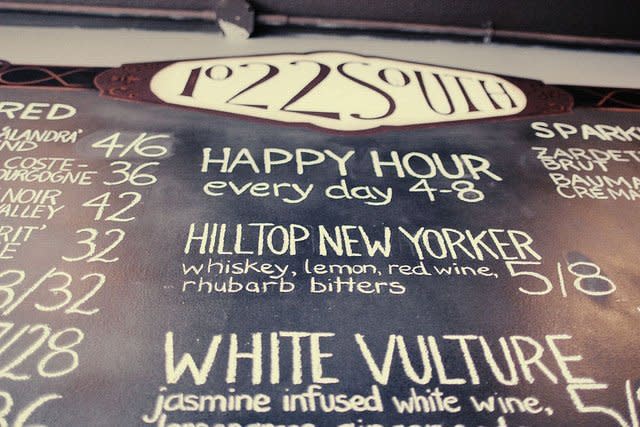 1022 SOUTH
RED
'ALANDRA'
4/6
COSTE-
36
NOIR
VALLEY
42
32
3/32
/28
36
HAPPY HOUR
every day 4-8
HILLTOP NEW YORKER
whiskey, lemon, red wine,
rhubarb bitters
5/8
WHITE VULTURE
jasmine infused white wine,
5
SPARK
ZARDET
BRUT
BAUMA
CRÉMA